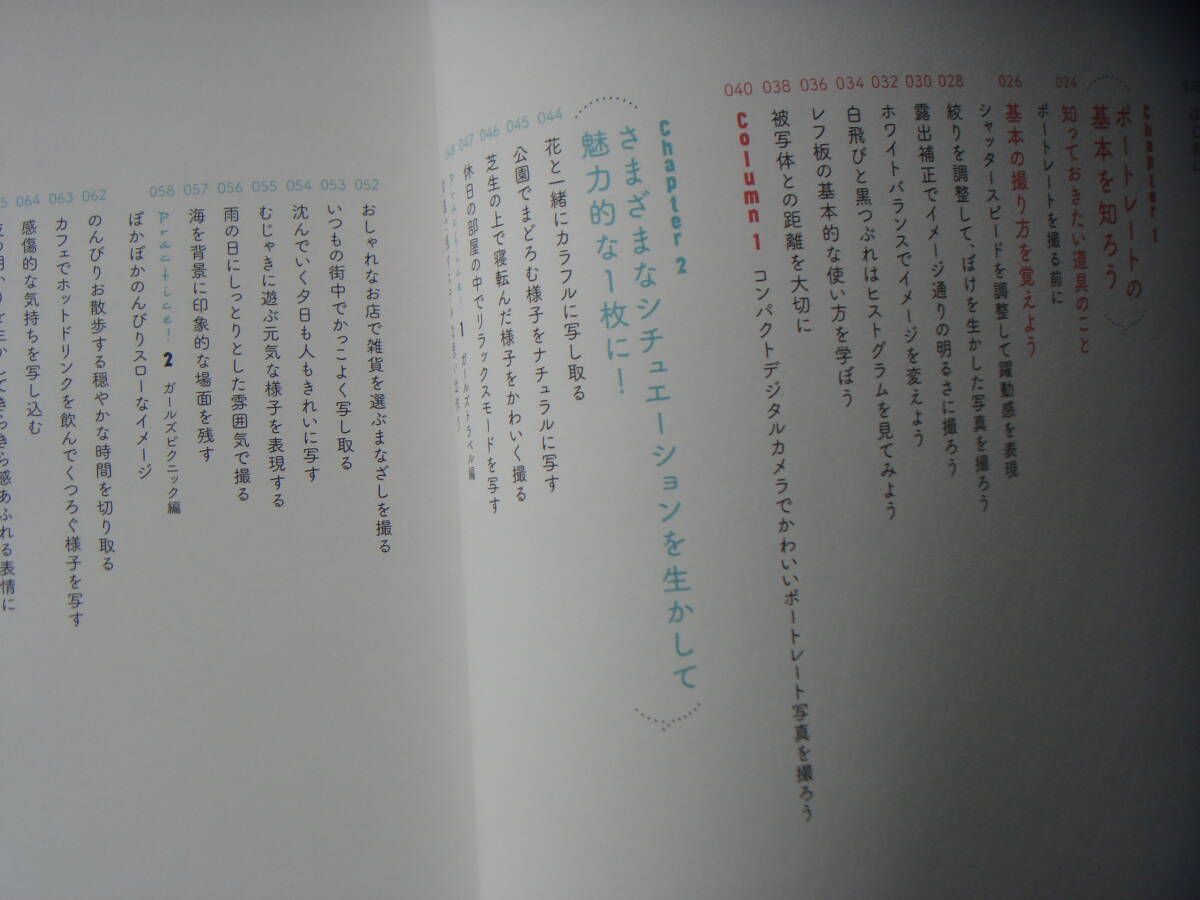 Chapter 1
ポートレートの
基本を知ろう
024
知っておきたい道具のこと
ポートレートを撮る前に
026
基本の撮り方を覚えよう
シャッタースピードを調整して躍動感を表現
028
絞りを調整して、ぼけを生かした写真を撮ろう
030
露出補正でイメージ通りの明るさに撮ろう
032
ホワイトバランスでイメージを変えよう
034
白飛びと黒つぶれはヒストグラムを見てみよう
036
レフ板の基本的な使い方を学ぼう
038
被写体との距離を大切に
040
Column 1 コンパクトデジタルカメラでかわいいポートレート写真を撮ろう
Chapter 2
さまざまなシチュエーションを生かして
魅力的な1枚に!
044
花と一緒にカラフルに写し取る
045
公園でまどろむ様子をナチュラルに写す
046
芝生の上で寝転んだ様子をかわいく撮る
047
休日の部屋の中でリラックスモードを写す
048
Practice! 1 ガールズトラベル編
052
おしゃれなお店で雑貨を選ぶまなざしを撮る
053
いつもの街中でかっこよく写し取る
054
沈んでいく夕日も人もきれいに写す
055
むじゃきに遊ぶ元気な様子を表現する
056
雨の日にしっとりとした雰囲気で撮る
057
海を背景に印象的な場面を残す
058
Practice! 2 ガールズピクニック編
ぽかぽかのんびりスローなイメージ
062
のんびりお散歩する穏やかな時間を切り取る
063
カフェでホットドリンクを飲んでくつろぐ様子を写す
064
感傷的な気持ちを写し込む